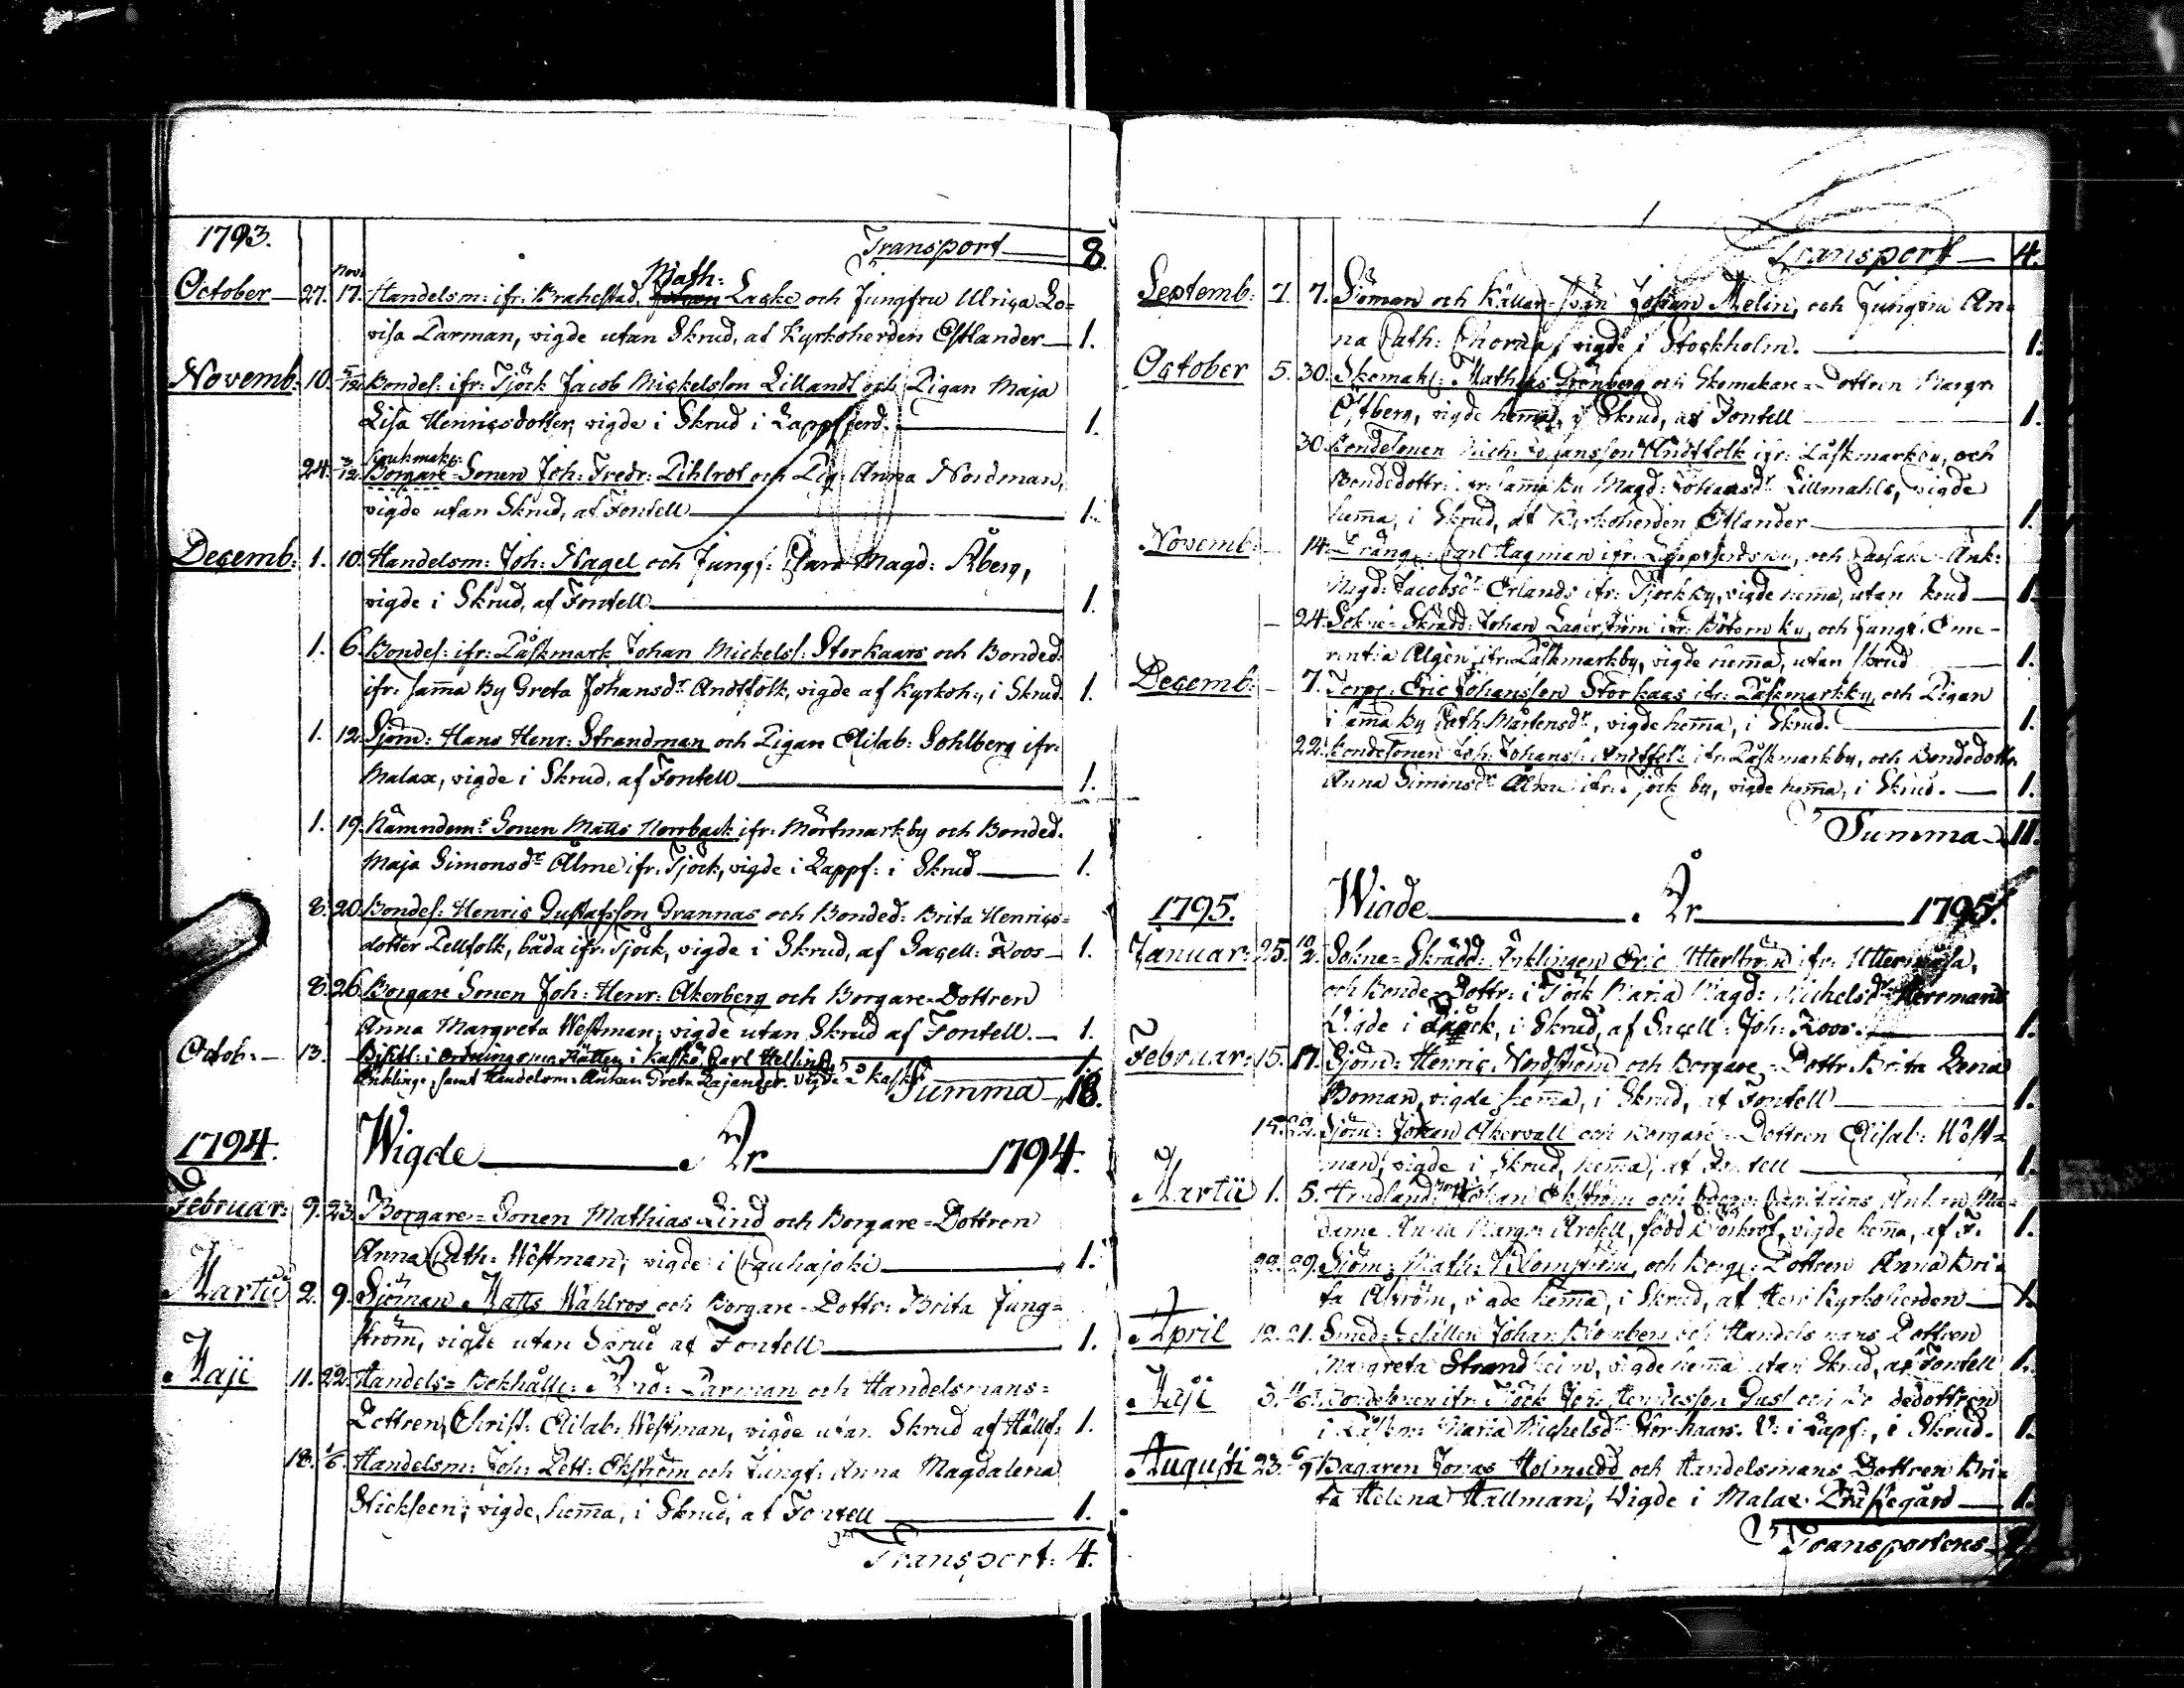 1793.
Transport 8.
October 27. Nov: 17. Handelsm: ifr: Brahestad, Math: Laske och Jungfru Ulrica Lo=
visa Parman, vigde utan Skrud, af Kyrkoherden Estlander 1.
Novemb: 10. 5/12. Bondes: ifr: Tjöck Jacob Mickelsson Lillandt och Pigan Maja
Lisa Henricsdotter, vigde i Skrud i Lappfjerd. 1.
24. 3/12. Borgare-Sonen Joh: Fredr: Pihlrot och Pig: Anna Nordman,
vigde utan Skrud, af Fontell 1.
Decemb: 1. 10. Handelsm: Joh: Nagel och Jungf: Clara Magd: Åberg,
vigde i Skrud, af Fontell 1.
1. 6. Bondes: ifr: Påskmark Johan Mickels: Storkaars och Bonded:
ifr: samma By Greta Johansdr Andtfolk, vigde af Kyrkoh:, i Skrud. 1.
1. 12. Sjöm: Hans Henr: Strandman och Pigan Elisab: Sohlberg ifr:
Malax, vigde i Skrud, af Fontell 1.
1. 19. Nämndem:s Sonen Matts Norrback ifr: Mörtmarkby och Bonded:
Maja Simonsdr Ålme ifr: Tjöck, vigde i Lappf: i Skrud 1.
8. 20. Bondes: Henric Gustafsson Grannas och Bonded: Brita Henrics=
dotter Pellfolk, båda ifr: Tjöck, vigde i Skrud, af Sacell: Roos 1.
8. 26. Borgare Sonen Joh: Henr: Åkerberg och Borgare-Dottren
Anna Margreta Westman; vigde utan Skrud af Fontell. 1.
Octob: 13. i Kaskö, Carl Hellin
Änkling, samt Handelsm: Änkan Greta Lajander. vigde i Kaskö 1.
Summa 18.
1794. Wigde År 1794.
Februar: 9. 23. Borgare=Sonen Mathias Lind och Borgare=Dottren
Anna Cath: Westman; vigde i Cauhajoki 1.
Martii 2. 9. Sjöman Matts Wahlroos och Borgare-Dottr: Brita Jung=
ström, vigde utan Skrud af Fontell 1.
Maji 11. 22. Handels=Bokhålls: And: Parman och Handelsmans=
Dottren, Christ: Elisab: Westman, vigde utan Skrud af Hällf: 1.
18. 1/6. Handelsm: Joh: Pett: Ekström och Jungf: Anna Magdalena
Hickleen; vigde, hemma, i Skrud, af Fontell 1.
Transport: 4.
Transport 4.
Septemb: 7. 7. Sjöman och Johan Melin, och Jungfru An=
na Cath: vigde i Stockholm. 1.
October 5. 30. Skomak: Mathias Grönberg och Skomakare=Dottren Margr:
Östberg, vigde hemma, i Skrud, af Fontell 1.
30. Bondesonen Mich: Johansson Andtfolk ifr: Påskmarkby, och
Bondedottr: ifr: samma By Magd: Johansdr Lillmahls, vigde
hemma, i Skrud, af Kyrkoherden Estlander 1.
Novemb: 14. Dräng: Carl Hagman ifr: och Änk:
Magd: Jacobsdr Erlands ifr: Tjöckby, vigde hemma, utan Skrud 1.
24. Sokne=Skrädd: Johan Lagerström ifr: Bötom by, och Jungf: Eme=
rentia Algèn ifr: Påskmarkby, vigde hemma, utan skrud 1.
Decemb: 7. Torp: Eric Johansson Storkaas ifr: Påskmarkby, och Pigan
i samma by Cath: Mårtensdr, vigde hemma, i Skrud. 1.
22. Bondesonen Joh: Johanss: ifr: Påskmarkby, och Bondedottr:
Anna Simonsdr Ålme ifr: Tjöck by, vigde hemma, i Skrud. 1.
Summa 11.
1795. Wigde År 1795.
Januar: 25. 10/2. Sokne=Skrädd: Änklingen Eric Utterström ifr: Uttermossa,
och Bonde=Dottr: i Tjöck Maria Magd: Michelsdr Herrmans
Vigde i Tjöck, i Skrud, af Sacell: Joh: Roos. 1.
Februar: 15. 17. Sjöm: Henric Nordström och Borgare=Dottr: Brita Lena
Boman, vigde hemma, i Skrud, af Fontell 1.
15. 22. Sjöm: Johan Åkervall och Borgare=Dottren Elisab: Wäst=
man, vigde i Skrud, hemma, af Fontell 1.
Martii 1. 5. Johan Ekström och Änkan Ma=
dame Anna Margr: född vigde hemma, af F. 1.
22. 29. Sjöm: Math: Blomström, och Borg: Dottren Anna Bri=
ta Åström, vigde hemma, i Skrud, af Herr Kyrkoherden 1.
April 12. 21. Smed=Gesällen Johan Blomberg och Handelsmans Dottren
Margreta Strandheim, vigde hemma utan Skrud, af Fontell 1.
Maji 3. Bondesonen ifr: Tjöck Joh: Henricsson Gust och Bondedottren
i Påskm: Maria Michelsdr Storkaars. V: i Lapf:, i Skrud. 1.
Augusti 23. Bagaren Jonas Holmudd och Handelsmans Dottren Bri=
ta Helena Hallman, Vigde i Malax Prästegård 1.
Transporteras